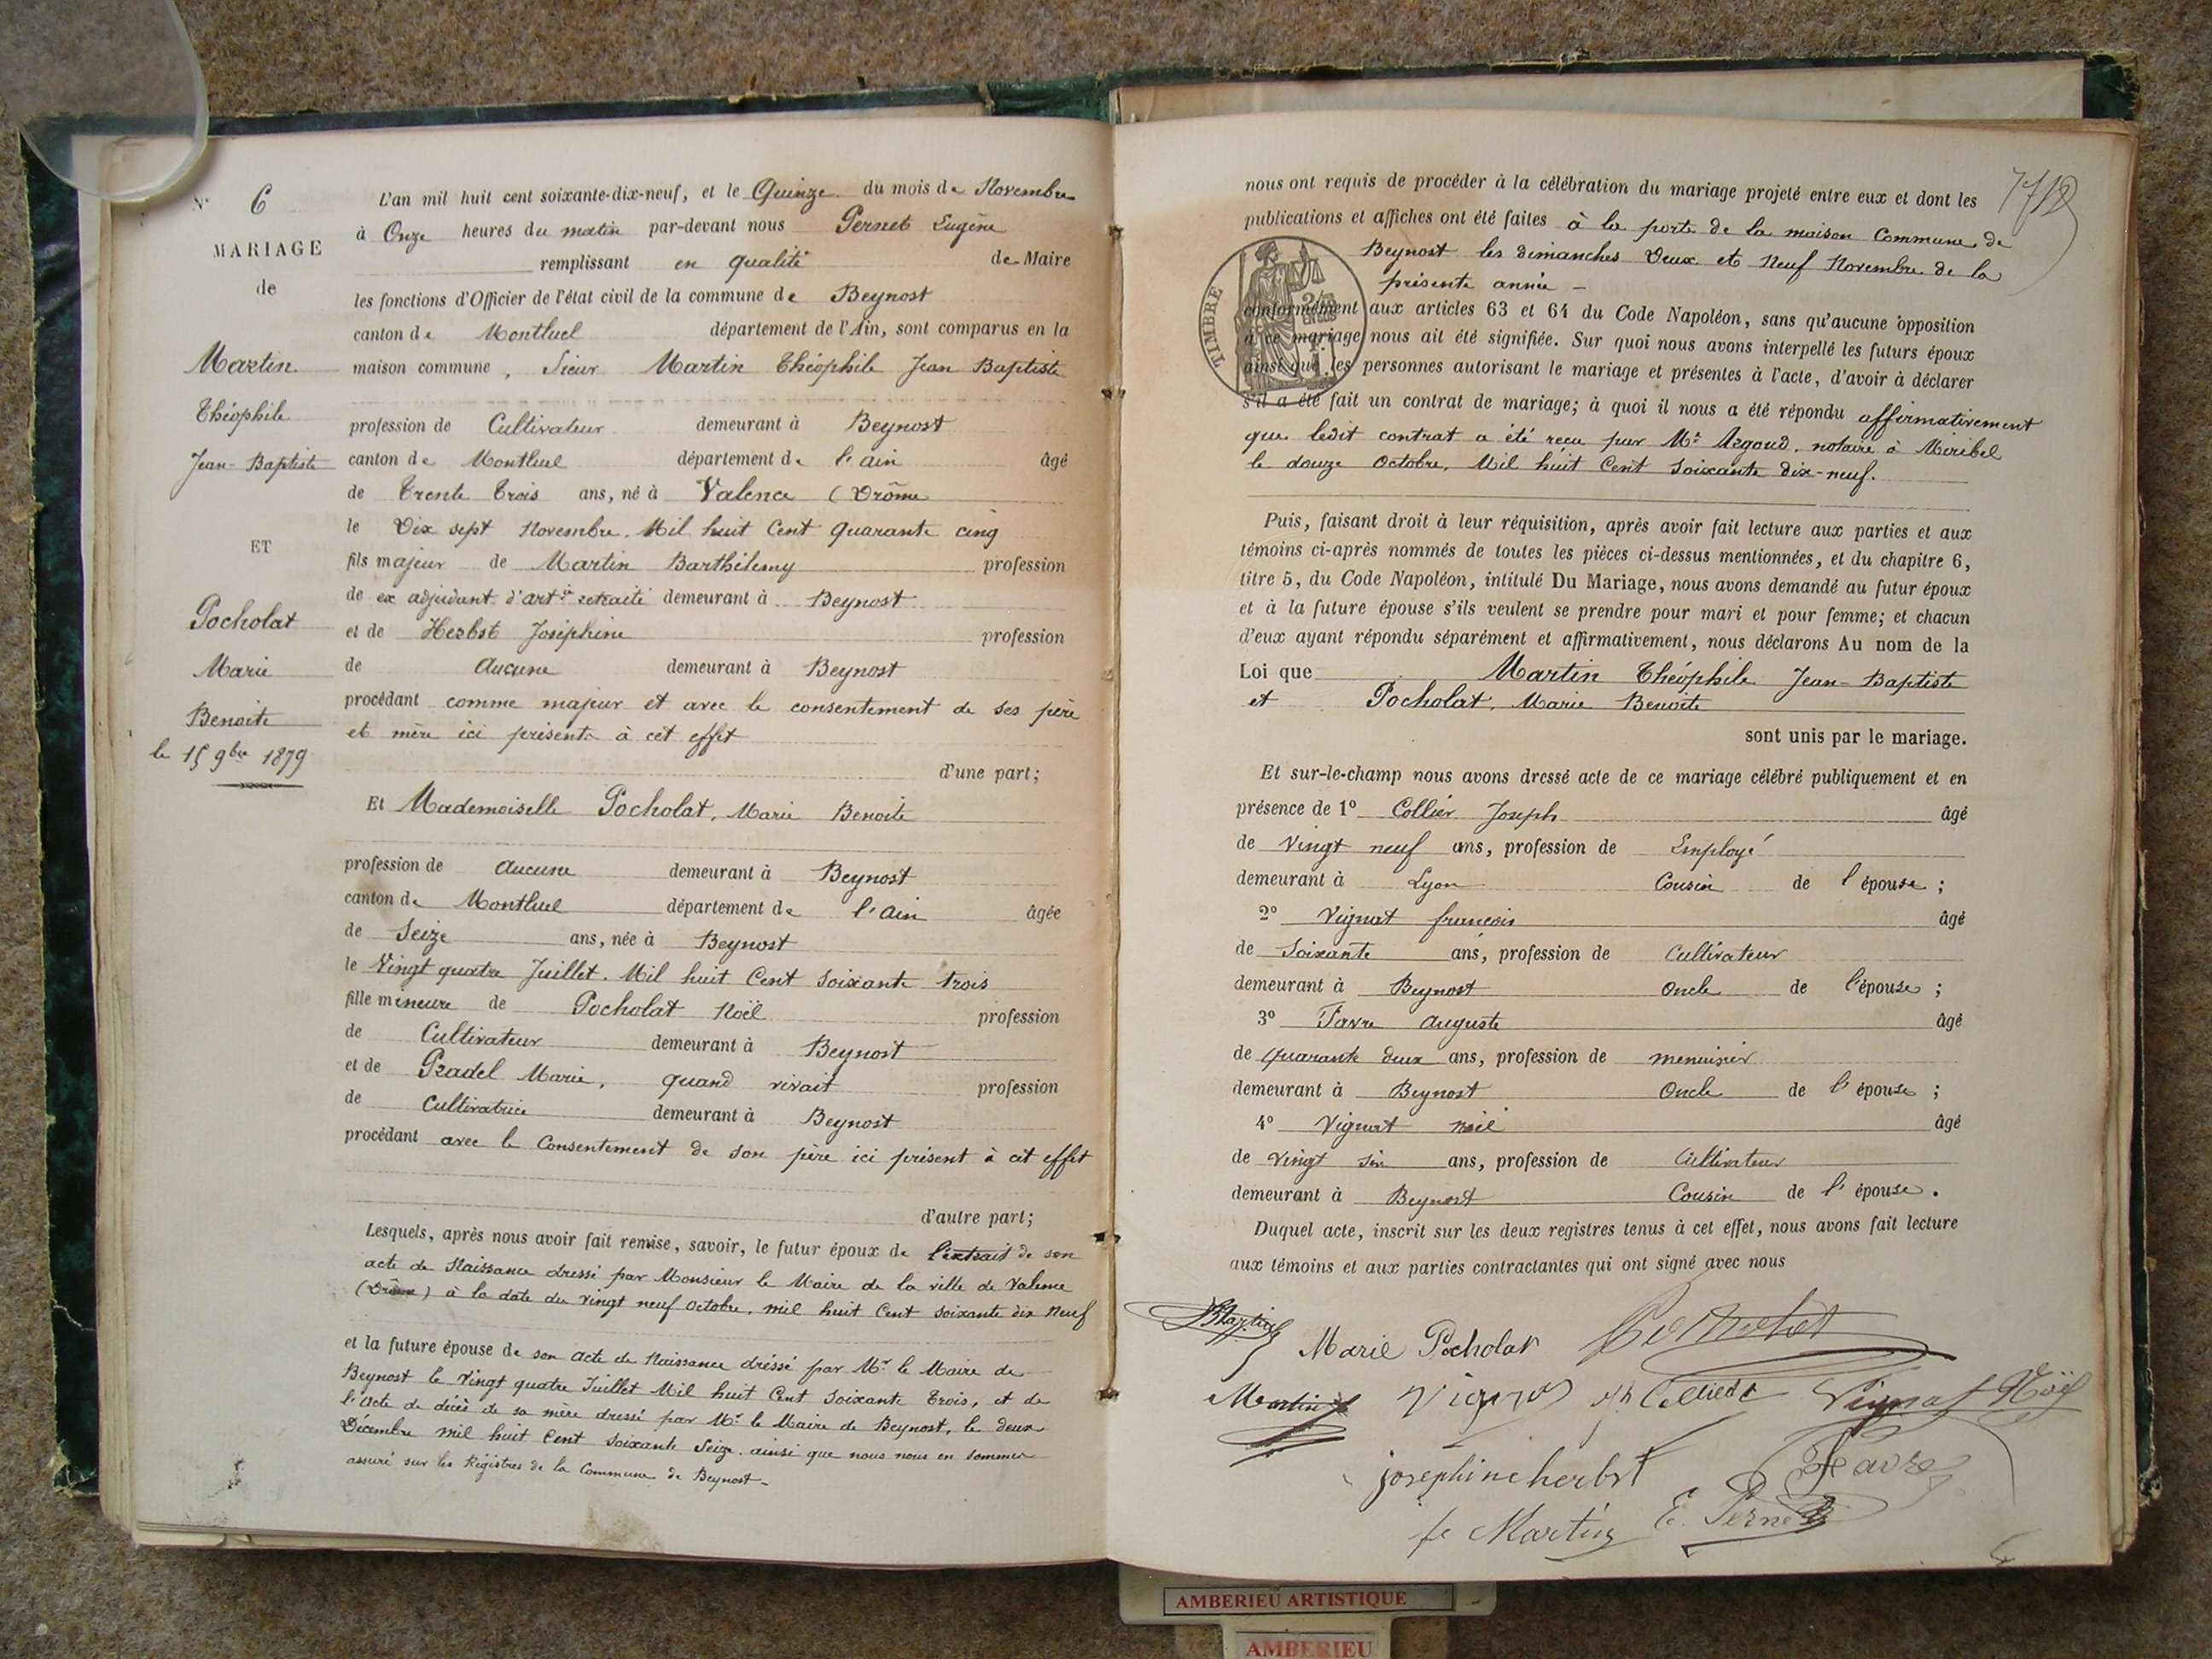 N° 6
MARIAGE
de
Martin
Théophile
Jean-Baptiste
ET
Pocholat
Marie
Benoite
le 15 9bre 1879
L'an mil huit cent soixante-dix-neuf, et le Quinze du mois de Novembre
à Onze heures du matin par-devant nous Pernet Eugène
remplissant en qualité de Maire
les fonctions d'Officier de l'état civil de la commune de Beynost
canton de Montluel département de l'Ain, sont comparus en la
maison commune, Sieur Martin Théophile Jean Baptiste
profession de Cultivateur demeurant à Beynost
canton de Montluel département de l'ain âgé
de Trente Trois ans, né à Valence (Drôme
le Dix sept Novembre. Mil huit Cent quarante cinq
fils majeur de Martin Barthélemy profession
de ex adjudant d'artie retraité demeurant à Beynost
et de Herbst Joséphine profession
de Aucune demeurant à Beynost
procédant comme majeur et avec le consentement de ses père
et mère ici présents à cet effet
d'une part;
Et Mademoiselle Pocholat, Marie Benoite
profession de Aucune demeurant à Beynost
canton de Montluel département de l'ain âgée
de Seize ans, née à Beynost
le Vingt quatre Juillet. Mil huit Cent soixante trois
fille mineure de Pocholat Noël profession
de Cultivateur demeurant à Beynost
et de Pradel Marie, quand vivait profession
de Cultivatrice demeurant à Beynost
procédant avec le Consentement de son père ici présent à cet effet
d'autre part;
Lesquels, après nous avoir fait remise, savoir, le futur époux de l'extrait de son
acte de Naissance dressé par Monsieur le Maire de la ville de Valence
(Drôme) à la date du vingt neuf octobre. mil huit Cent soixante dix Neuf
et la future épouse de son acte de Naissance dréssé par Mr le Maire de
Beynost le Vingt quatre Juillet Mil huit Cent Soixante Trois, et de
l'acte de décès de sa mère dressé par Mr le Maire de Beynost, le deux
Décembre mil huit Cent soixante Seize. ainsi que nous nous en sommes
assuré sur les Régistres de la Commune de Beynost-
nous ont requis de procéder à la célébration du mariage projeté entre eux et dont les
publications et affiches ont été faites à la porte de la maison Commune de
Beynost les dimanches Deux et Neuf Novembre de la
présente année -
TIMBRE
conformément aux articles 63 et 64 du Code Napoléon, sans qu'aucune opposition
à ce mariage nous ait été signifiée. Sur quoi nous avons interpellé les futurs époux
ainsi que les personnes autorisant le mariage et présentes à l'acte, d'avoir à déclarer
s'il a été fait un contrat de mariage; à quoi il nous a été répondu affirmativement
que ledit contrat a été reçu par Me Argoud, notaire à Miribel
le douze Octobre, Mil huit Cent Soixante dix-neuf.
Puis, faisant droit à leur réquisition, après avoir fait lecture aux parties et aux
témoins ci-après nommés de toutes les pièces ci-dessus mentionnées, et du chapitre 6,
titre 5, du Code Napoléon, intitulé Du Mariage, nous avons demandé au futur époux
et à la future épouse s'ils veulent se prendre pour mari et pour femme; et chacun
d'eux ayant répondu séparément et affirmativement, nous déclarons Au nom de la
Loi que Martin Théophile Jean-Baptiste
et Pocholat, Marie Benoite
sont unis par le mariage.
Et sur-le-champ nous avons dressé acte de ce mariage célébré publiquement et en
présence de 1° Collier Joseph âgé
de Vingt neuf ans, profession de Employé
demeurant à Lyon Cousin de l'épouse ;
2° Vignat francois âgé
de Soixante ans, profession de Cultivateur
demeurant à Beynost Oncle de l'épouse ;
3° Favre Auguste âgé
de quarante deux ans, profession de menuisier
demeurant à Beynost Oncle de l'épouse ;
4° Vignat noël âgé
de vingt six ans, profession de Cultivateur
demeurant à Beynost Cousin de l'épouse.
Duquel acte, inscrit sur les deux registres tenus à cet effet, nous avons fait lecture
aux témoins et aux parties contractantes qui ont signé avec nous
BMartin Marie Pocholat Pocholat
Martin Vignat Vignat Noël
josephine herbst Favre
E. Pernet
Martin
AMBERIEU ARTISTIQUE
AMBERIEU